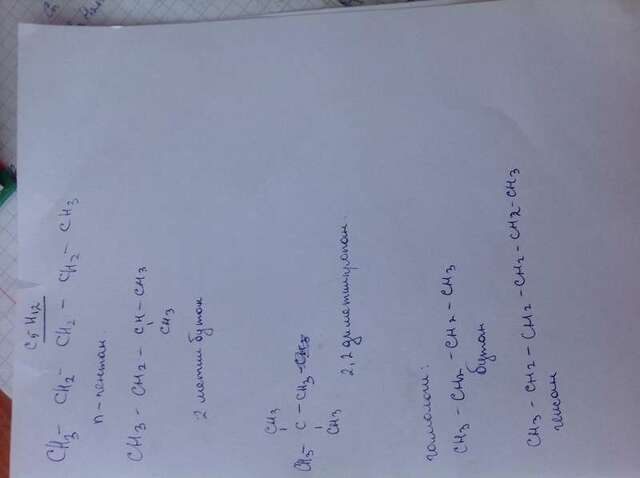 C5H12
CH3 - CH2 - CH2 - CH2 - CH3
n - пентан
CH3 - CH2 - CH - CH3
CH3
2 метил бутан
CH3
CH3 - C - CH3
CH3
2,2 диметилпропан.
гомологи:
CH3 - CH2 - CH2 - CH3
бутан
CH3 - CH2 - CH2 - CH2 - CH2 - CH3
гексан